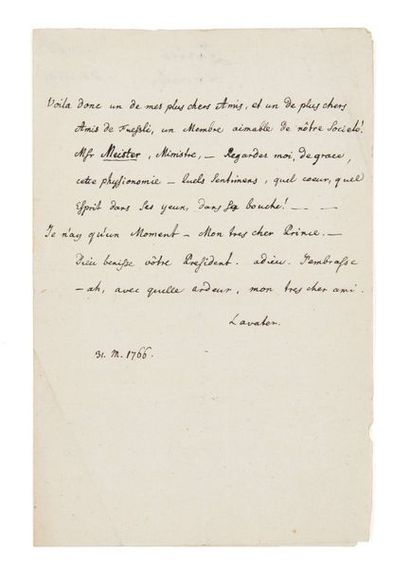 Voila donc un de mes plus chers Amis, et un de plus chers
Amis de Fuessli, un Membre aimable de nôtre Societé!
Msr Meister, Ministre, – Regardes moi, de grace,
cette physionomie – quels Sentimens, quel coeur, quel
Esprit dans Ses yeux, dans Sa bouche! – –
Je n'ay qu'un Moment – Mon tres cher Prince. –
Dieu benisse vôtre President. adieu. J'embrasse
– ah, avec quelle ardeur, mon tres cher ami.
Lavater.
31. M. 1766.